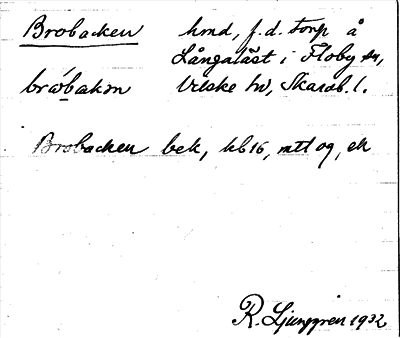 Brobacken hmd, f.d. torp å
Långalãst i Floby sn,
brώbakən Vilske hd, Skarab. l.
Brobacken bek, kb16, mtl og, ek
R. Ljunggren 1932